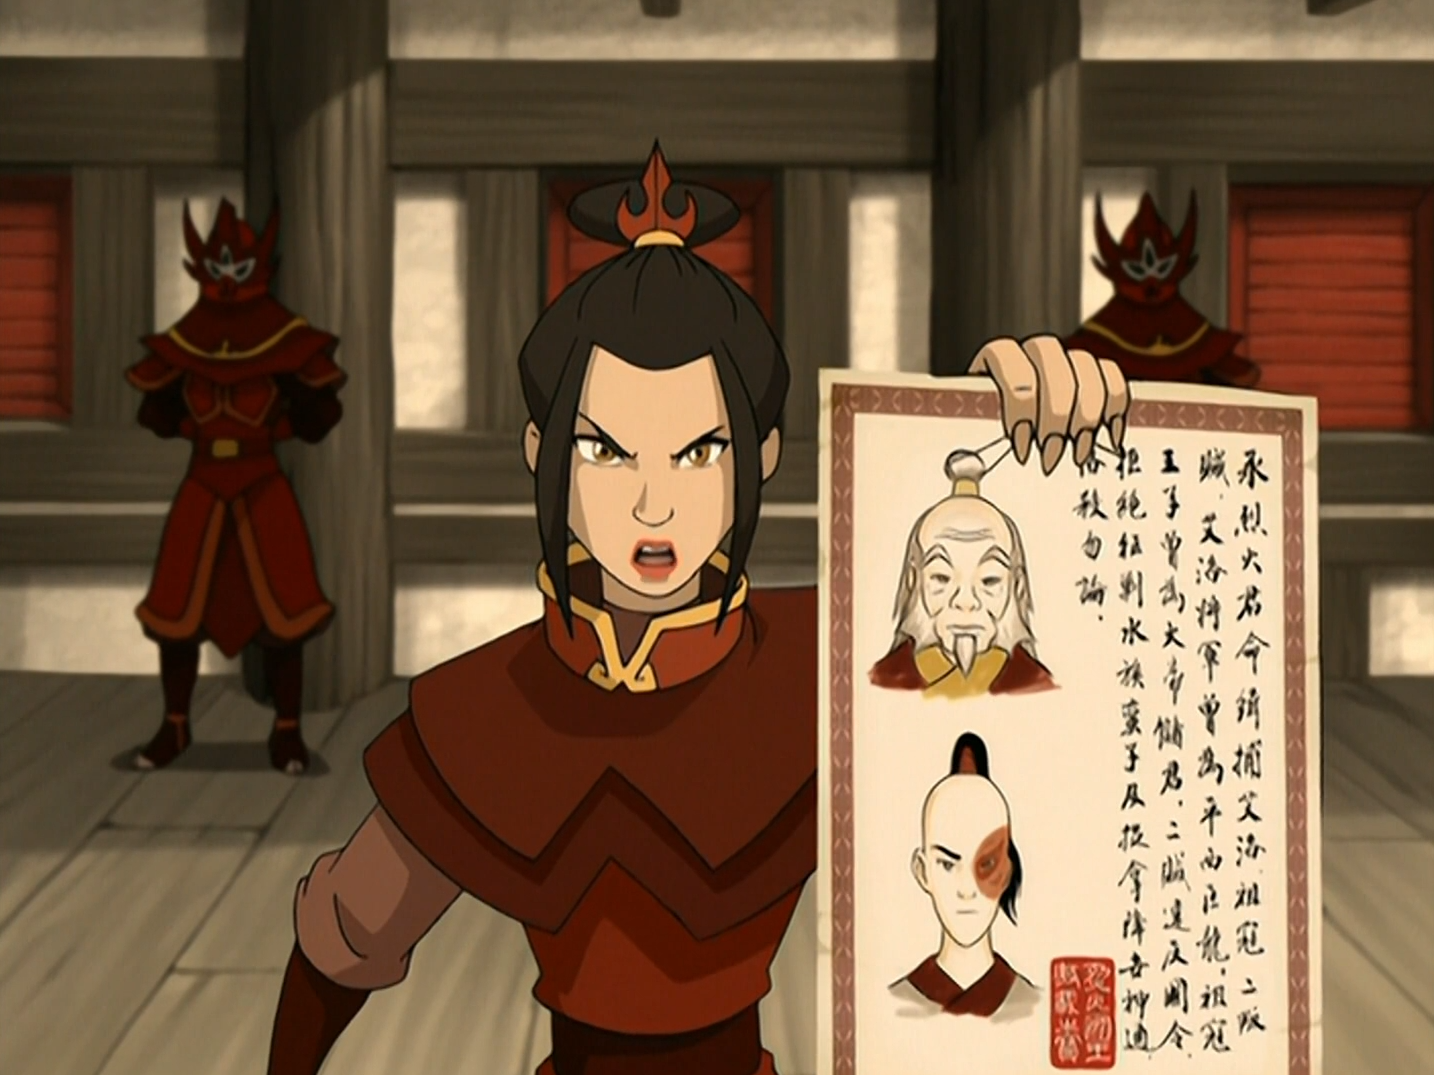 承烈火君命緝捕艾洛祖寇二叛
賊．艾洛將軍曾為平西巨龍，祖寇
王子曾為大帝儲君．二賊違反國令．
拒絕征剿水族蠻子及捉拿降世神通
格殺勿論．